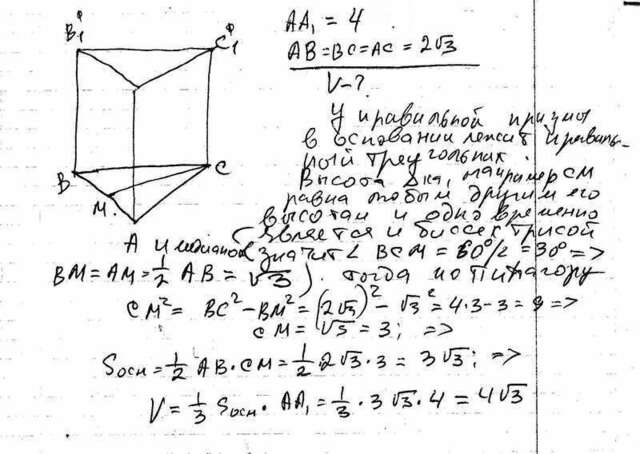 B₁
C₁
AA₁ = 4
AB=BC=AC = 2√3
V-?
B
C
M.
A
У правильной призмы
в основании лежит правиль-
ный треугольник.
Высота Δка, например CM
равна любым другим его
высотам и одновременно
является и биссектрисой
и медианой значит ∠ BCM = 60°/2 = 30° =>
BM = AM = 1/2 AB = √3 ). тогда по Пифагору
CM² = BC² - BM² = (2√3)² - √3² = 4·3-3 = 9 =>
CM = √9 = 3; =>
Sосн = 1/2 AB·CM = 1/2·2√3·3 = 3√3; =>
V = 1/3 Sосн· AA₁ = 1/3·3√3·4 = 4√3